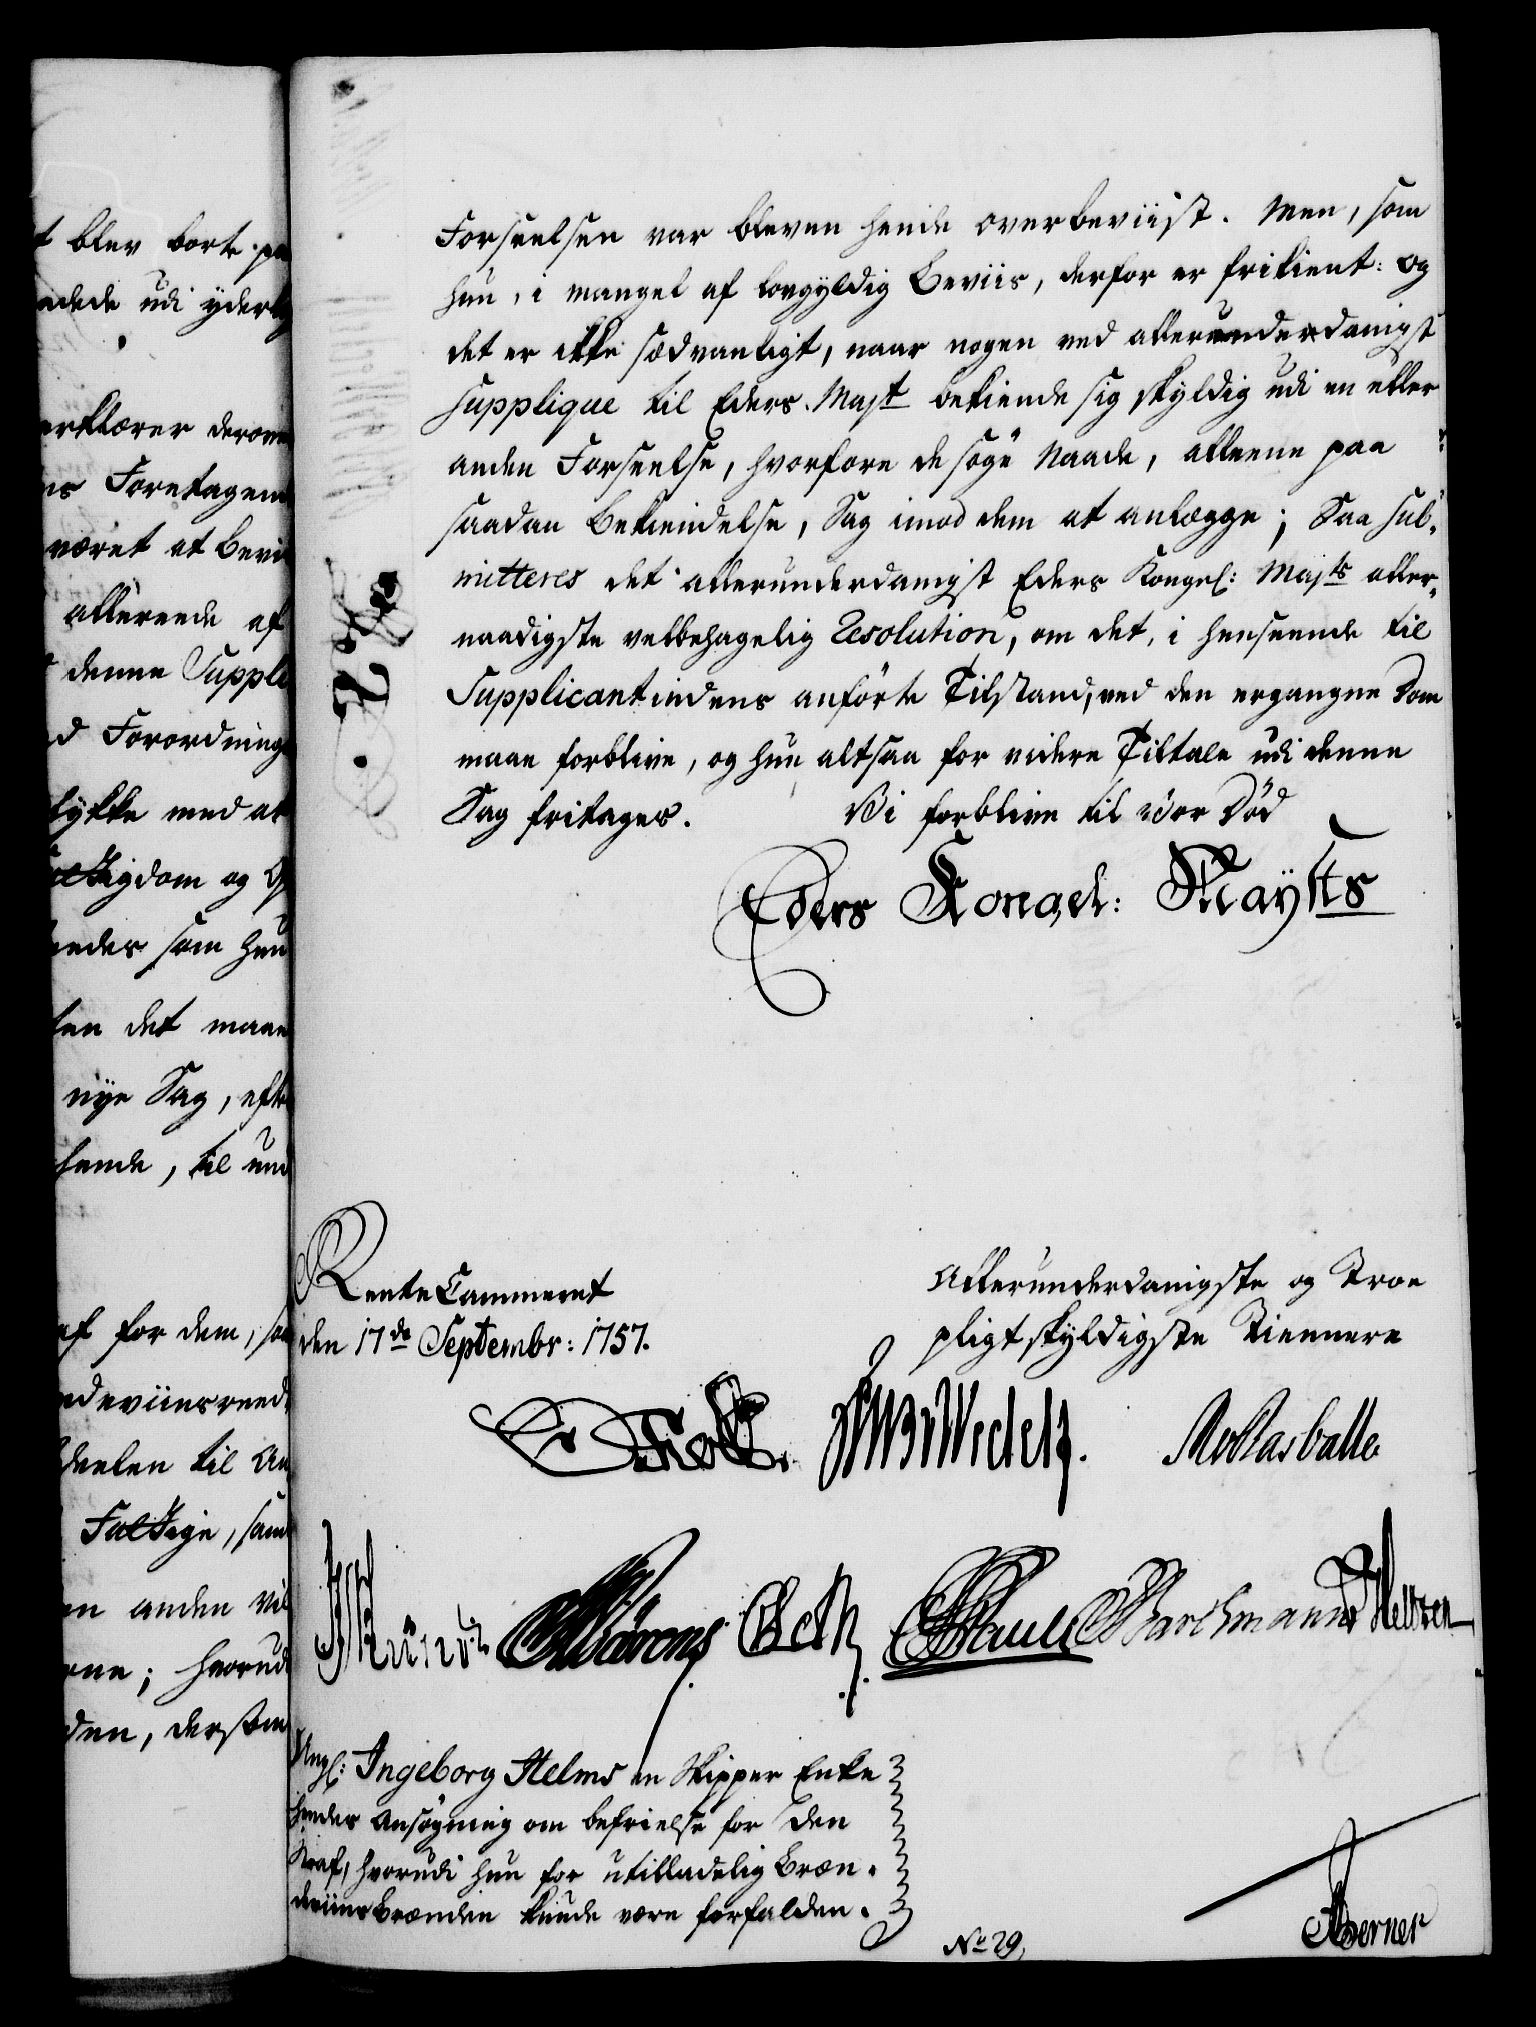 t blev borte paa
ndede udi yderlig
erklærer derom
ns Foretagende
været at bevi
allereede af
denne Suppli
d Forordning
tykke med at
tigdom og
eedes som hun
en det maae
nye Sag, efter
hende, til und
af for dem, som
ndeviinsreed
deelen til An
sam
en anden vil
rne; hvorud
den, dersom
Forseelsen var bleven hende overbeviist. Men, som
hun, i mangel af lovgyldig Beviis, derfor er frikient: og
det er ikke sædvanligt, naar nogen ved allerunderdanigst
Supplique til Eders Majt bekiende sig skyldig udi en eller
anden Forseelse, hvorfore de søge Naade, alleene paa
saadan Bekiendelse, Sag imod dem at anlægge; Saa sub-
mitteres det allerunderdanigst Eders Kongel: Majts aller-
naadigste velbehagelig Resolution, om det, i henseende til
Supplicantindens anførte Tilstand, ved den ergangne Dom
maae forblive, og hun altsaa for videre Tiltale udi denne
Sag fritages. Vi forblive til vor Død
Eders Kongel: Maysts
Rente Cammeret
den 17de Septembr: 1757.
Allerunderdanigste og Troe
pligtskyldigste Tienere
Wedelf.
Holmsballe
Barchmann
Ang: Ingeborg Helms en Skipper Enke
hendes Ansøgning om befrielse for den
Straf, hvorudi hun for utilladelig Bræn-
deviinsbrænden kunde være forfalden.
No 29,
Berner